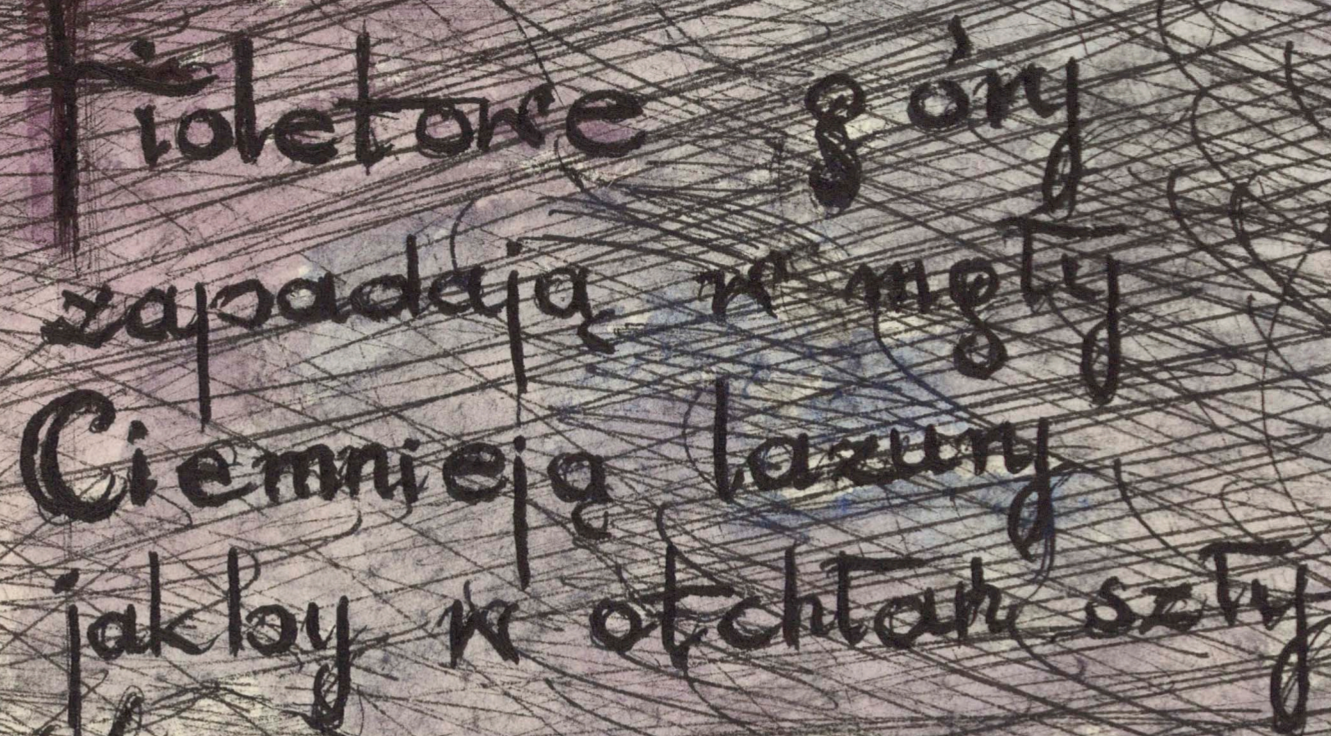 Fioletowe góry
zapadają w mgły
Ciemnieją lazury
jakby w otchłań szły